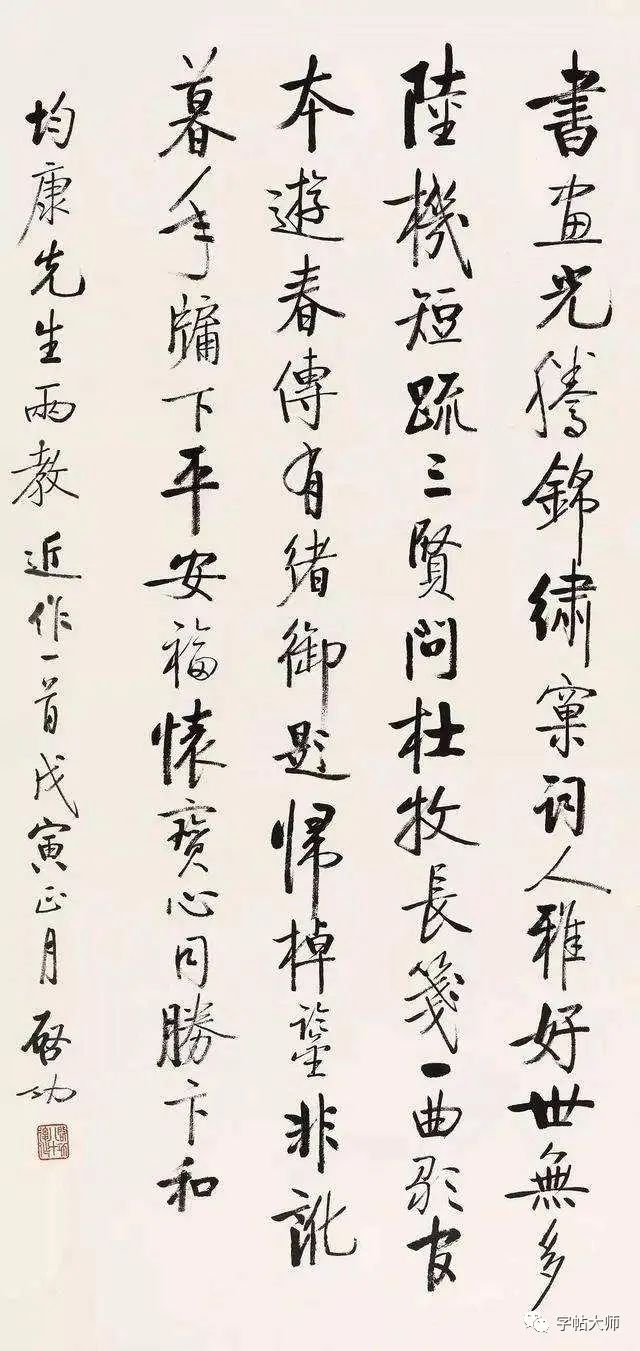 書画光騰錦繡窠詞人雅好世無多
陸機短疏三賢問杜牧長箋一曲歌官
本遊春傳有緒御題歸棹鑒非訛
暮年牖下平安福懷寶心同勝卞和
均康先生兩教 近作一首戊寅正月 啓功
字帖大师